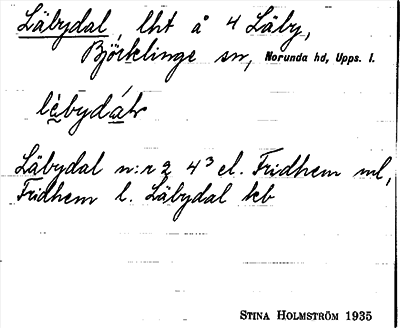 Läbydal, lht å 4 Läby,
Björklinge sn, Norunda hd, Upps. l.
lèbydάλ
Läbydal n:r 2 4³ el. Fridhem ml,
Fridhem l. Läbydal kb
STINA HOLMSTRÖM 1935